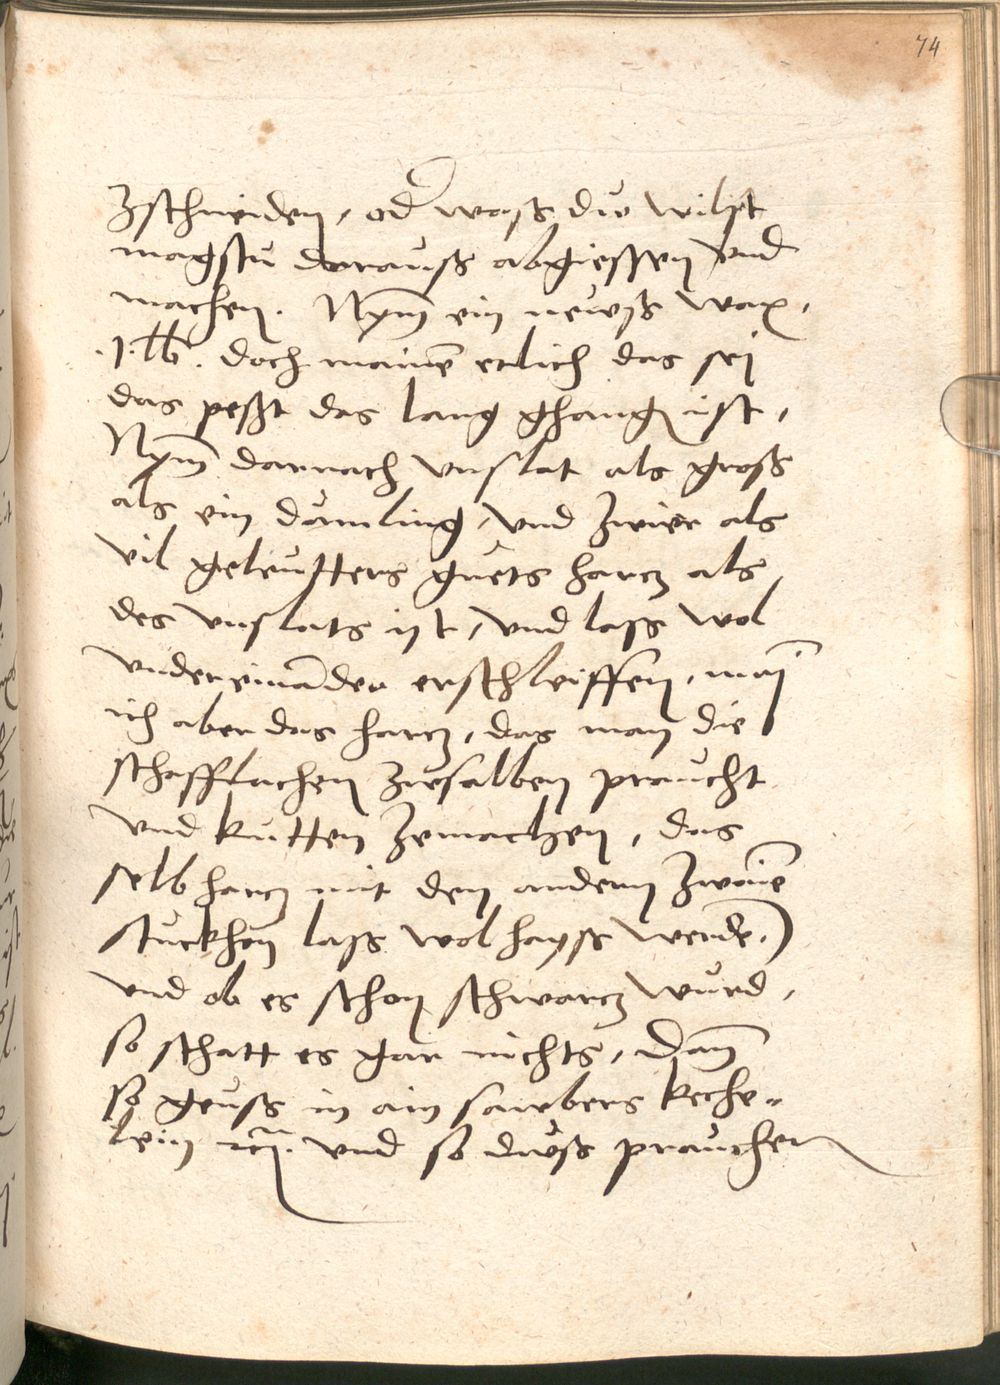 74
Zschneiden, od waß du wilst
magstu darauß abgiessen vnd
machen. Nym ein newß wax,
.1. lb. doch mainē etlich das sej
das peßt das lang ghang ist,
Nym darnach vnslat als groß
als ein dämling, vnd zwier als
vil geleutters guets harcz als
des vnslats ist, vnd lass wol
vndereināder erschleiffen, main
ich aber das harcz, das man die
schafflachen zwsalben praucht
vnd kutten zemachen, das
selb harcz mit den andern zwaiē
stuckhen lass wol hayss werdē,
vnd ob es schon schwarcz wurd,
so schatt es gar nichts, Dan
so geuß in ain sawbers keche„
lein rc. vnd so duß prauchen